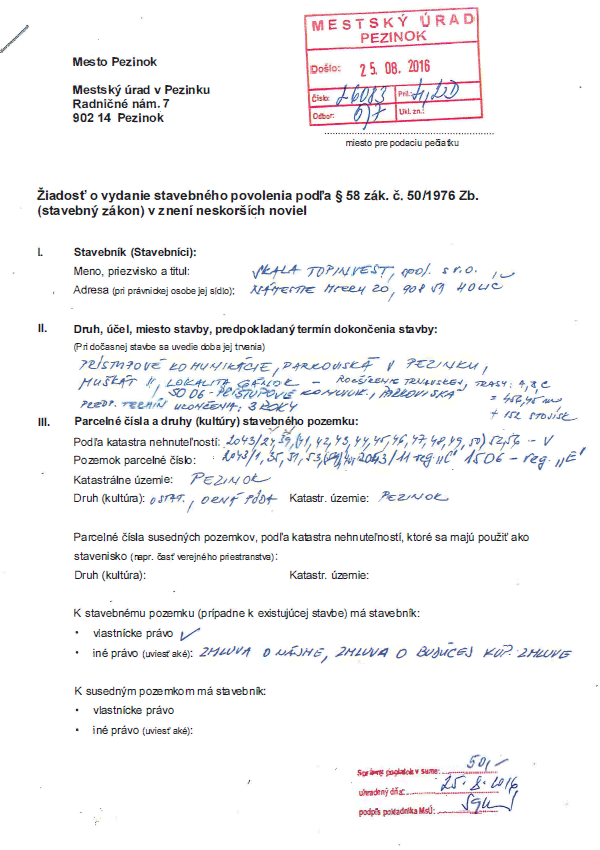 MESTSKÝ ÚRAD
PEZINOK
Došlo: 25. 08. 2016
Číslo: 26083 Príl.:
Odbor: Ukl. zn.:
Mesto Pezinok
Mestský úrad v Pezinku
Radničné nám. 7
902 14 Pezinok
miesto pre podaciu pečiatku
Žiadosť o vydanie stavebného povolenia podľa § 58 zák. č. 50/1976 Zb.
(stavebný zákon) v znení neskorších noviel
I. Stavebník (Stavebníci):
Meno, priezvisko a titul: SKALA TOPINVEST, spol. s r.o.
Adresa (pri právnickej osobe jej sídlo): NÁMESTIE MIERU 20, 908 51 HOLÍČ
II. Druh, účel, miesto stavby, predpokladaný termín dokončenia stavby:
(Pri dočasnej stavbe sa uvedie doba jej trvania)
PRÍSTUPOVÉ KOMUNIKÁCIE, PARKOVISKÁ V PEZINKU,
MUŠKÁT II, LOKALITA - ROZŠÍRENIE TRNAVSKEJ, TRASY: A, B, C
SO 06 - PRÍSTUPOVÉ KOMUNIK., PARKOVISKÁ = 456,45 m
PREDP. TERMÍN UKONČENIA: 3 ROKY + 152 STOJÍSK
III. Parcelné čísla a druhy (kultúry) stavebného pozemku:
Podľa katastra nehnuteľností: 2043/27, 39, 41, 42, 43, 44, 45, 46, 47, 48, 49, 50, 52, 56 - V
Pozemok parcelné číslo: 2043/1, 35, 51, 53, 2043/11 reg „C“ 1506 - reg. „E“
Katastrálne územie: PEZINOK
Druh (kultúra): OSTAT., ORNÁ PÔDA Katastr. územie: PEZINOK
Parcelné čísla susedných pozemkov, podľa katastra nehnuteľností, ktoré sa majú použiť ako
stavenisko (napr. časť verejného priestranstva):
Druh (kultúra): Katastr. územie:
K stavebnému pozemku (prípadne k existujúcej stavbe) má stavebník:
• vlastnícke právo ✓
• iné právo (uviesť aké): ZMLUVA O NÁJME, ZMLUVA O BUDÚCEJ KÚP. ZMLUVE
K susedným pozemkom má stavebník:
• vlastnícke právo
• iné právo (uviesť aké):
Správny poplatok v sume: 50,-
uhradený dňa: 25.8.2016
podpis pokladníka MsÚ: